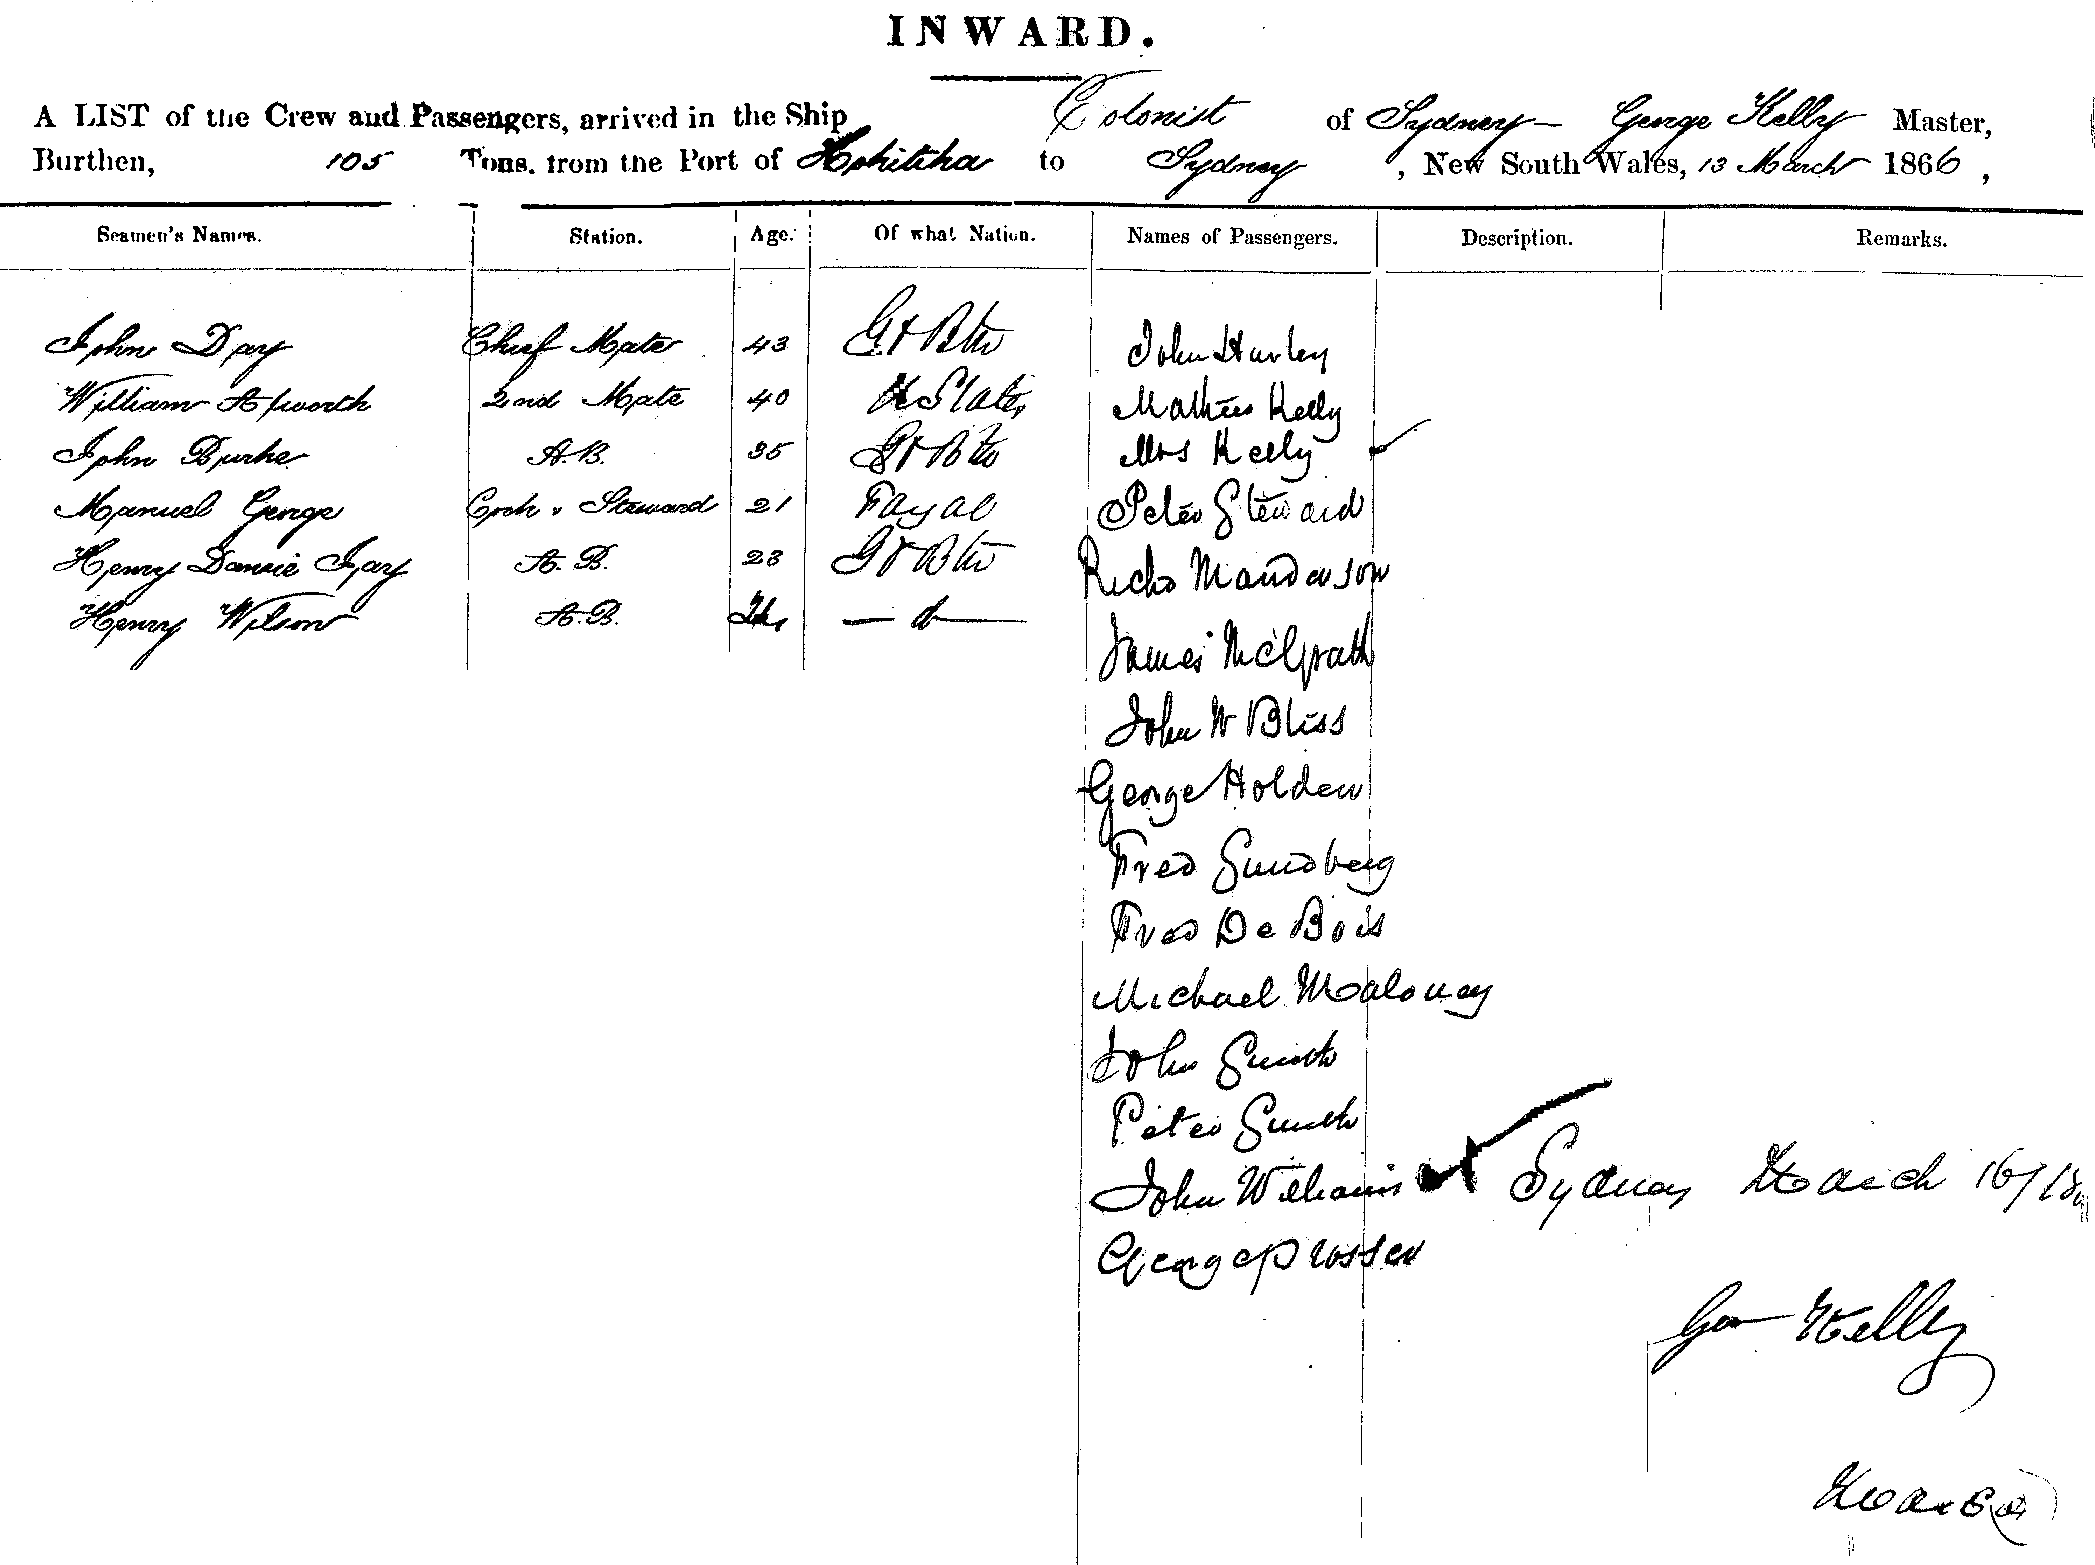 INWARD.
A LIST of the Crew and Passengers, arrived in the Ship Colonist of Sydney George Kelly Master,
Burthen, 105 Tons, from the Port of Hokitika to Sydney, New South Wales, 13 March 1866,
Seamen's Names. Station. Age. Of what Nation. Names of Passengers. Description. Remarks.
John Day Chief Mate 43 Gt Btn John Hurley
William Apworth 2nd Mate 40 U States Mathew Kelly
John Burke A.B. 35 Gt Btn Mrs Kelly
Manuel George Cook & Steward 21 Fayal Peter Steward
Henry Jay A.B. 23 Gt Btn Richd Manderson
Henry Wilson A.B. James McGrath
John W Bliss
George Holden
Fred Sundberg
Fred De Bois
Michael Maloney
John Smith
Peter Smith
John Williams Sydney March 16/
George Prosser
Geo Kelly
Master